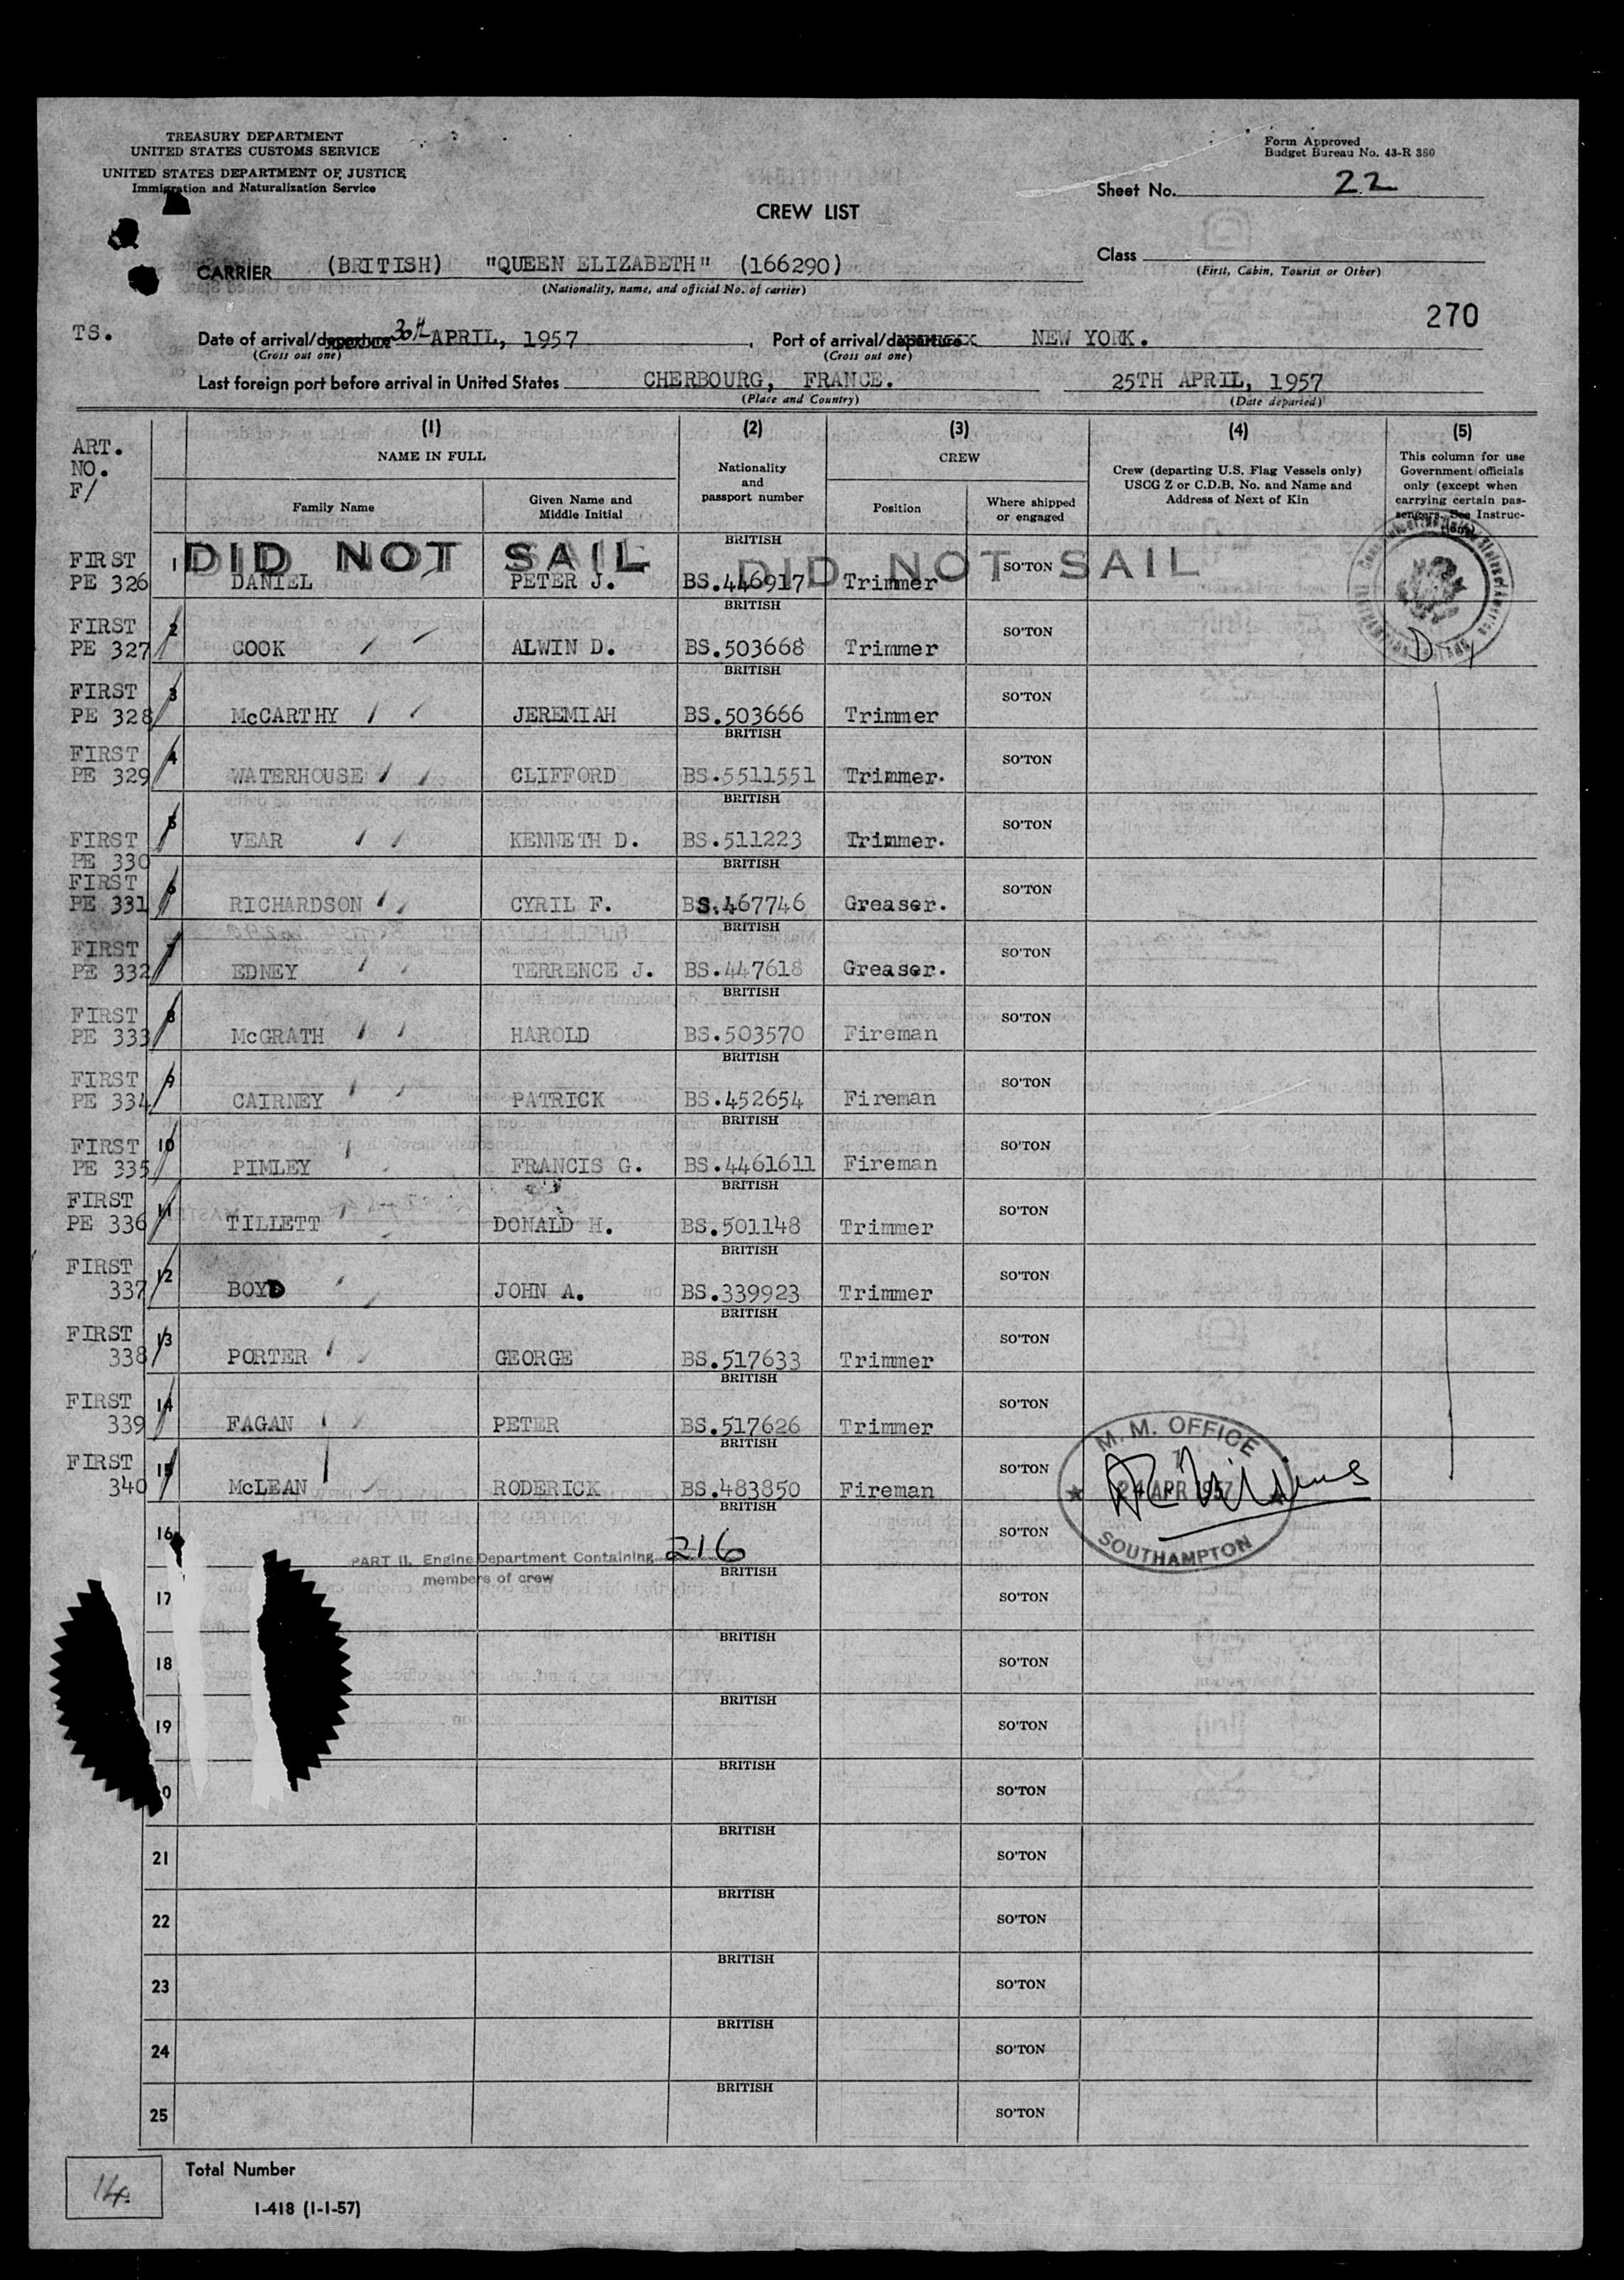 TREASURY DEPARTMENT
UNITED STATES CUSTOMS SERVICE
UNITED STATES DEPARTMENT OF JUSTICE
Immigration and Naturalization Service
Form Approved
Budget Bureau No. 43-R 380
Sheet No. 22
CREW LIST
Class
(First, Cabin, Tourist or Other)
CARRIER (BRITISH) "QUEEN ELIZABETH" (166290)
(Nationality, name, and official No. of carrier)
270
TS.
Date of arrival/departure 30th APRIL, 1957, Port of arrival/departure NEW YORK.
(Cross out one) (Cross out one)
Last foreign port before arrival in United States CHERBOURG, FRANCE. 25TH APRIL, 1957
(Place and Country) (Date departed)
ART. NO. F/
(1) (2) (3) (4) (5)
NAME IN FULL
Family Name
Given Name and Middle Initial
Nationality and passport number
CREW
Position
Where shipped or engaged
Crew (departing U.S. Flag Vessels only)
USCG Z or C.D.B. No. and Name and
Address of Next of Kin
This column for use
Government officials
only (except when
carrying certain pas-
sengers. See Instruc-
tions)
DID NOT SAIL DID NOT SAIL
FIRST PE 326 1 DANIEL PETER J. BRITISH BS.446917 Trimmer SO'TON
FIRST PE 327 2 COOK ALWIN D. BRITISH BS.503668 Trimmer SO'TON
FIRST PE 328 3 McCARTHY JEREMIAH BRITISH BS.503666 Trimmer SO'TON
FIRST PE 329 4 WATERHOUSE CLIFFORD BRITISH BS.5511551 Trimmer. SO'TON
FIRST PE 330 5 VEAR KENNETH D. BRITISH BS.511223 Trimmer. SO'TON
FIRST PE 331 6 RICHARDSON CYRIL F. BRITISH BS.467746 Greaser. SO'TON
FIRST PE 332 7 EDNEY TERRENCE J. BRITISH BS.447618 Greaser. SO'TON
FIRST PE 333 8 McGRATH HAROLD BRITISH BS.503570 Fireman SO'TON
FIRST PE 334 9 CAIRNEY PATRICK BRITISH BS.452654 Fireman SO'TON
FIRST PE 335 10 PIMLEY FRANCIS G. BRITISH BS.4461611 Fireman SO'TON
FIRST PE 336 11 TILLETT DONALD H. BRITISH BS.501148 Trimmer SO'TON
FIRST 337 12 BOYD JOHN A. BRITISH BS.339923 Trimmer SO'TON
FIRST 338 13 PORTER GEORGE BRITISH BS.517633 Trimmer SO'TON
FIRST 339 14 FAGAN PETER BRITISH BS.517626 Trimmer SO'TON
FIRST 340 15 McLEAN RODERICK BRITISH BS.483850 Fireman SO'TON
M. M. OFFICE
24 APR 1957
SOUTHAMPTON
16 BRITISH SO'TON
PART II. Engine Department Containing 216
members of crew
17 BRITISH SO'TON
18 BRITISH SO'TON
19 BRITISH SO'TON
20 BRITISH SO'TON
21 BRITISH SO'TON
22 BRITISH SO'TON
23 BRITISH SO'TON
24 BRITISH SO'TON
25 BRITISH SO'TON
14 Total Number
I-418 (1-1-57)